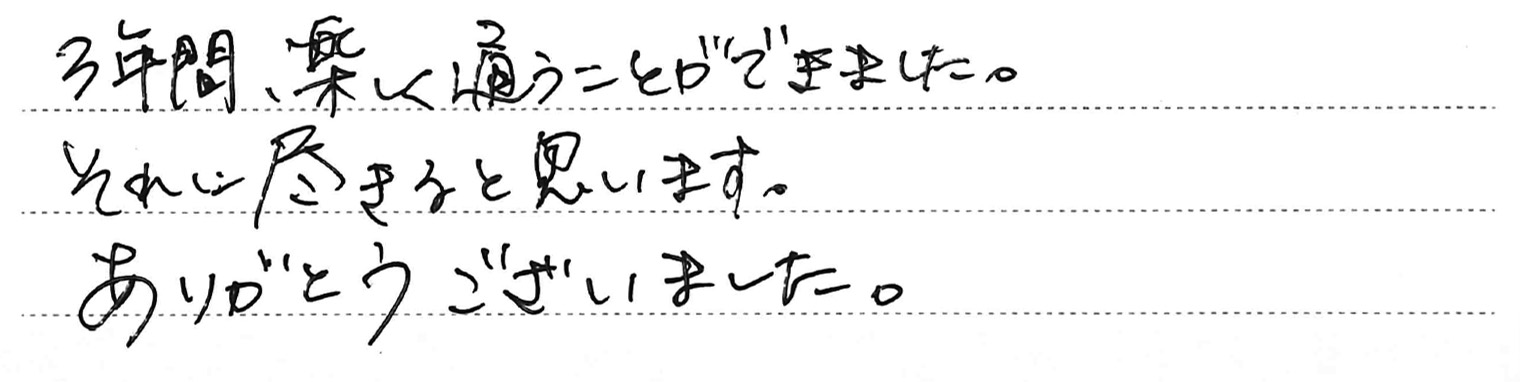 3年間、楽しく通うことができました。
それに尽きると思います。
ありがとうございました。